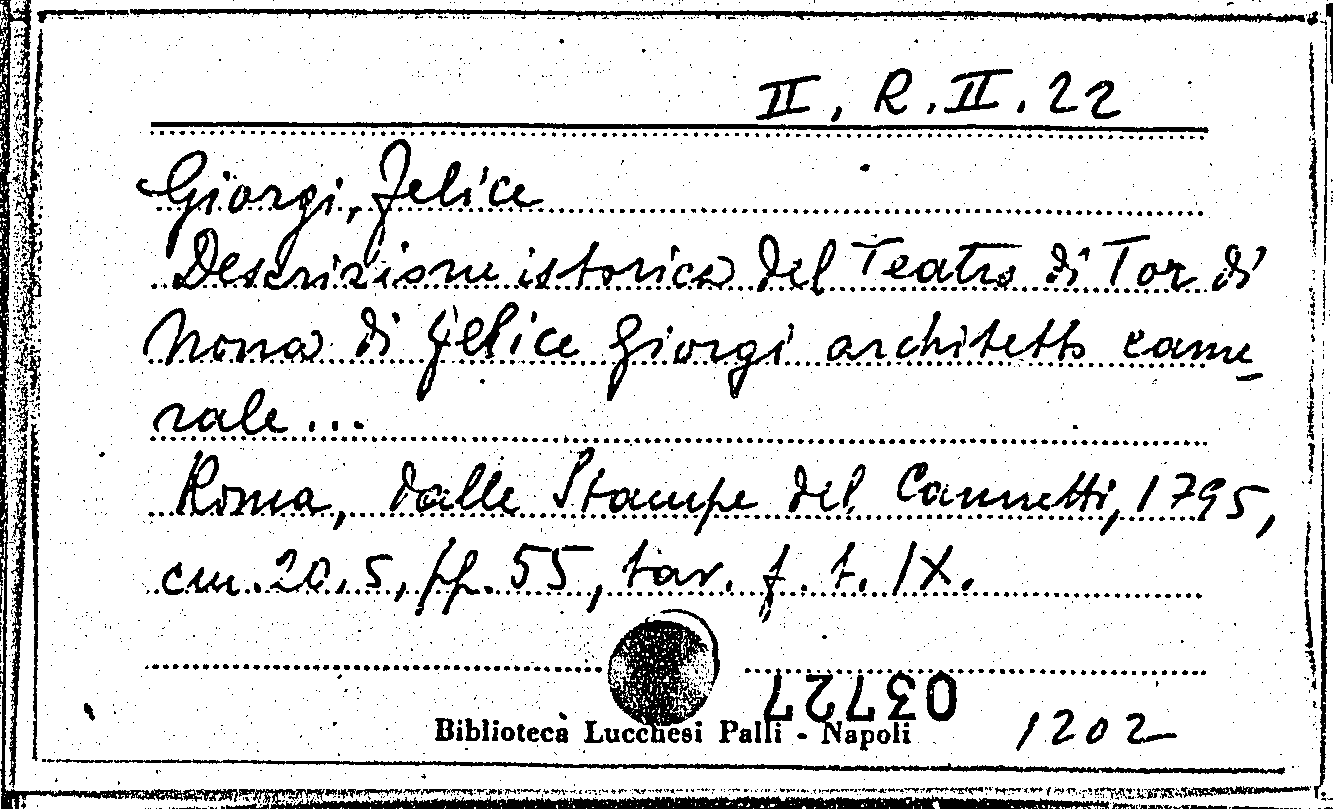 II. R. II. 22
Giorgi, Felice
Descrizione istorica del Teatro di Tor di
Nona di Felice Giorgi architetto came
rale ...
Roma, dalle Stampe del Cannetti, 1795,
cm. 20,5, pp. 55, tav. f. t. IX.
03727
Biblioteca Lucchesi Palli - Napoli
1202